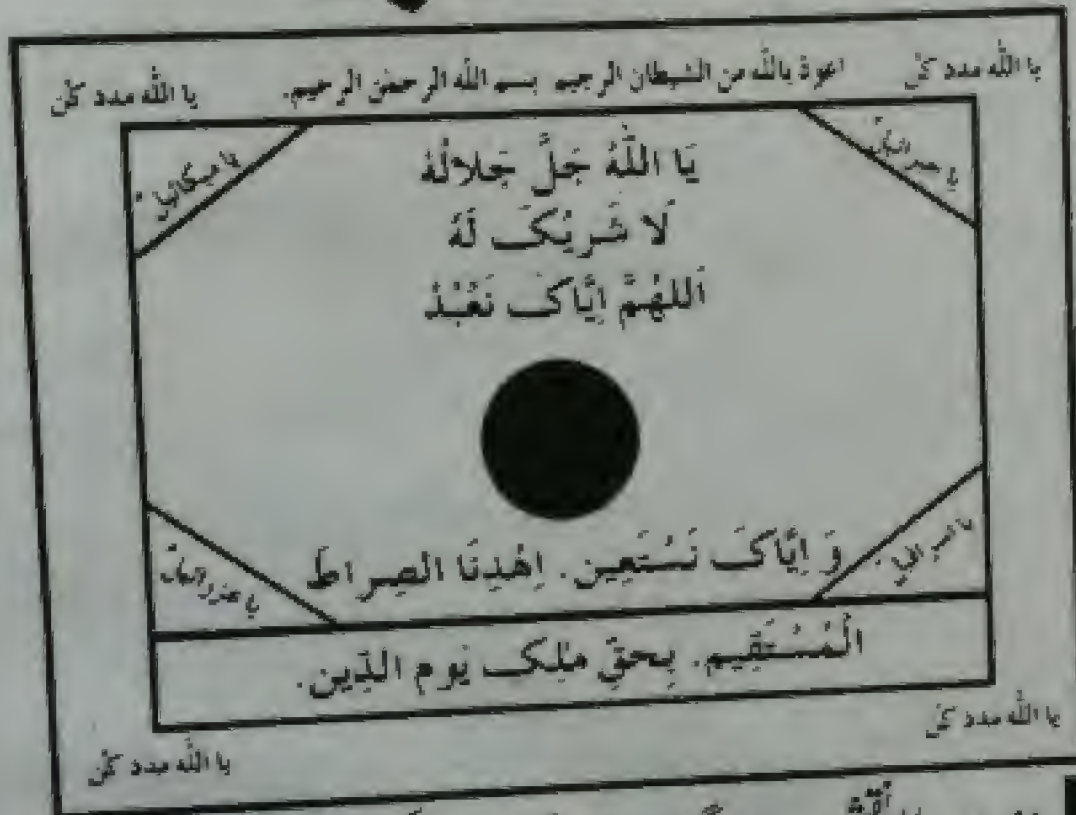 یا اللّٰه مدد کن
اعوذ باللّٰه من الشیطان الرجیم بسم اللّٰه الرحمٰن الرحیم.
یا اللّٰه مدد کن
یا جبرائیلؑ
یا میکائیلؑ
یَا اللّٰهُ جَلَّ جَلَالُهٗ
لَا شَرِیْکَ لَهٗ
اَللّٰهُمَّ اِیَّاکَ نَعْبُدُ
وَ اِیَّاکَ نَسْتَعِین. اِهْدِنَا الصِراطَ
یا اسرافیلؑ
یا عزرائیلؑ
الْمُسْتَقِیم. بِحقِّ مٰلِک یَومِ الدِّین.
یا اللّٰه مدد کن
یا اللّٰه مدد کن